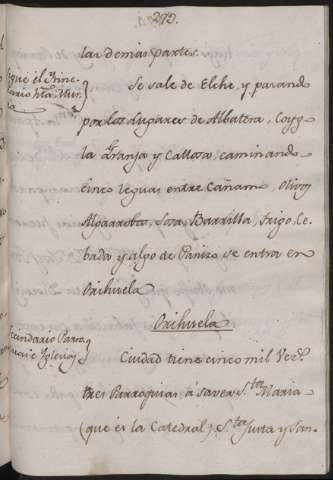 273.
las demas partes.
Sigue el Itine-
rario hta. Mur-
cia
Se sale de Elche, y pasando
por los lugares de Albatera, Cox,
la Granja y Callosa, caminando
cinco leguas entre Cañam, olivos
Algarroba, Sosa, Barrilla, Trigo, Ce-
bada y algo de Panizo se entra en
Orihuela
Orihuela
Ciudad tiene cinco mil Vecs.
tres Parroquias á saver Sta. Maria
(que es la Catedral) Sta. Justa y San-